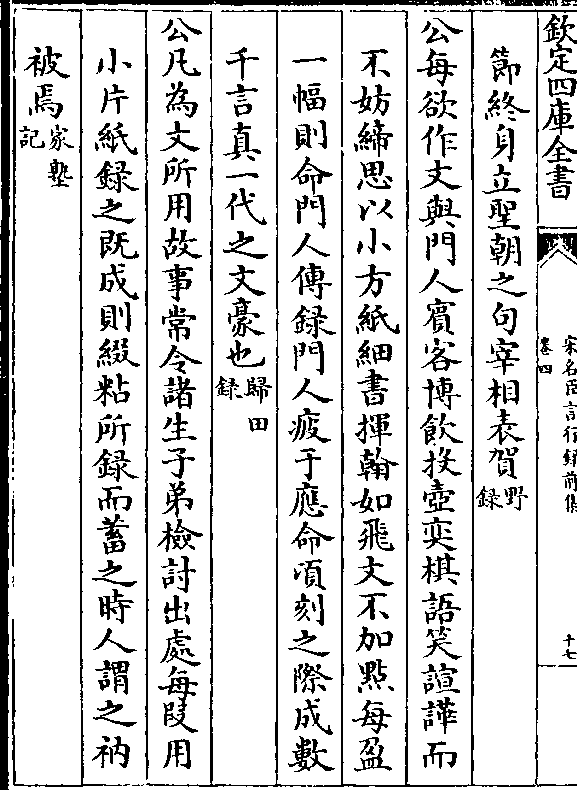 欽定四庫全書
宋名臣言行録前集
卷四
十七
節終身立聖朝之句宰相表賀野録
公每欲作文與門人賓客博飲投壺奕棋語笑諠譁而
不妨締思以小方紙細書揮翰如飛文不加點每盈
一幅則命門人傳録門人疲于應命頃刻之際成數
千言真一代之文豪也歸田録
公凡為文所用故事常令諸生子弟檢討出處每段用
小片紙録之既成則綴粘所録而蓄之時人謂之衲
被焉家塾記